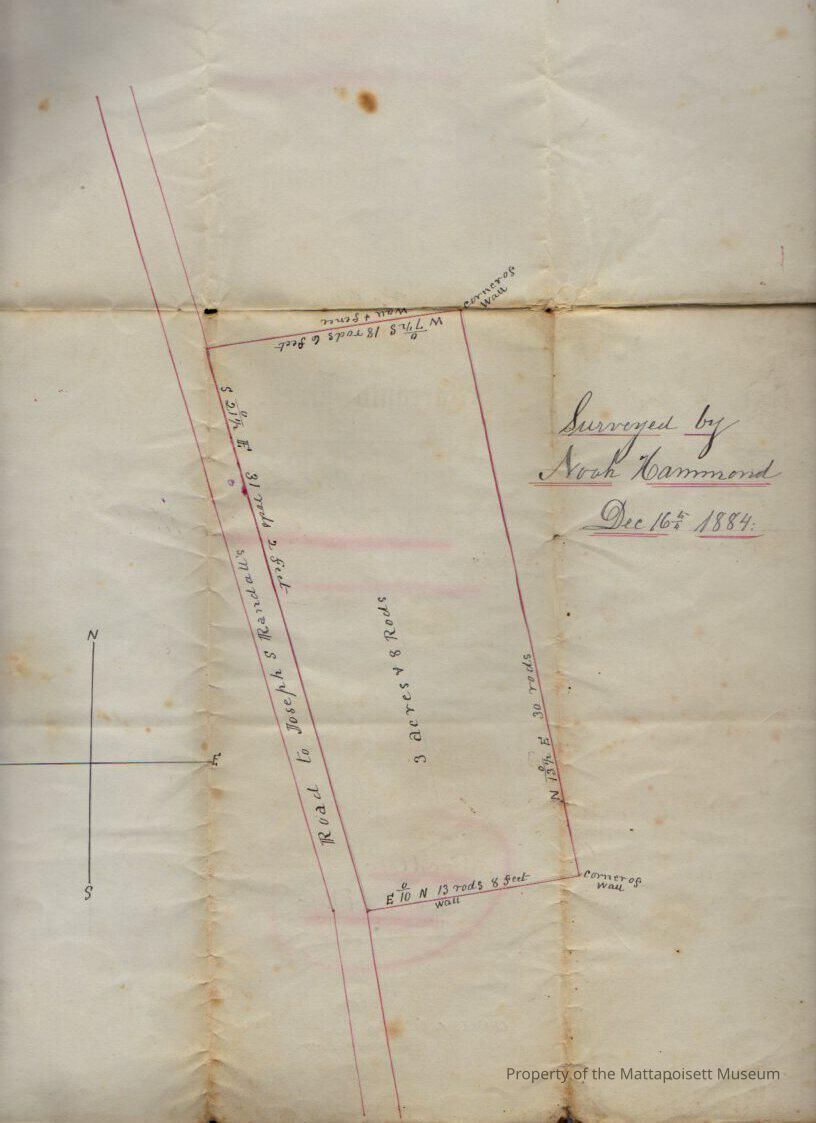 corner of
wall
wall & fence
W 7½° S 18 rods 6 feet
Surveyed by
Noah Hammond
Dec 16th 1884.
S 21½° E 31 rods 2 feet
Road to Joseph S Randall's
3 acres & 8 Rods
N 13½° E 30 rods
N
E
S
E 10° N 13 rods 8 feet
wall
corner of
wall
Property of the Mattapoisett Museum